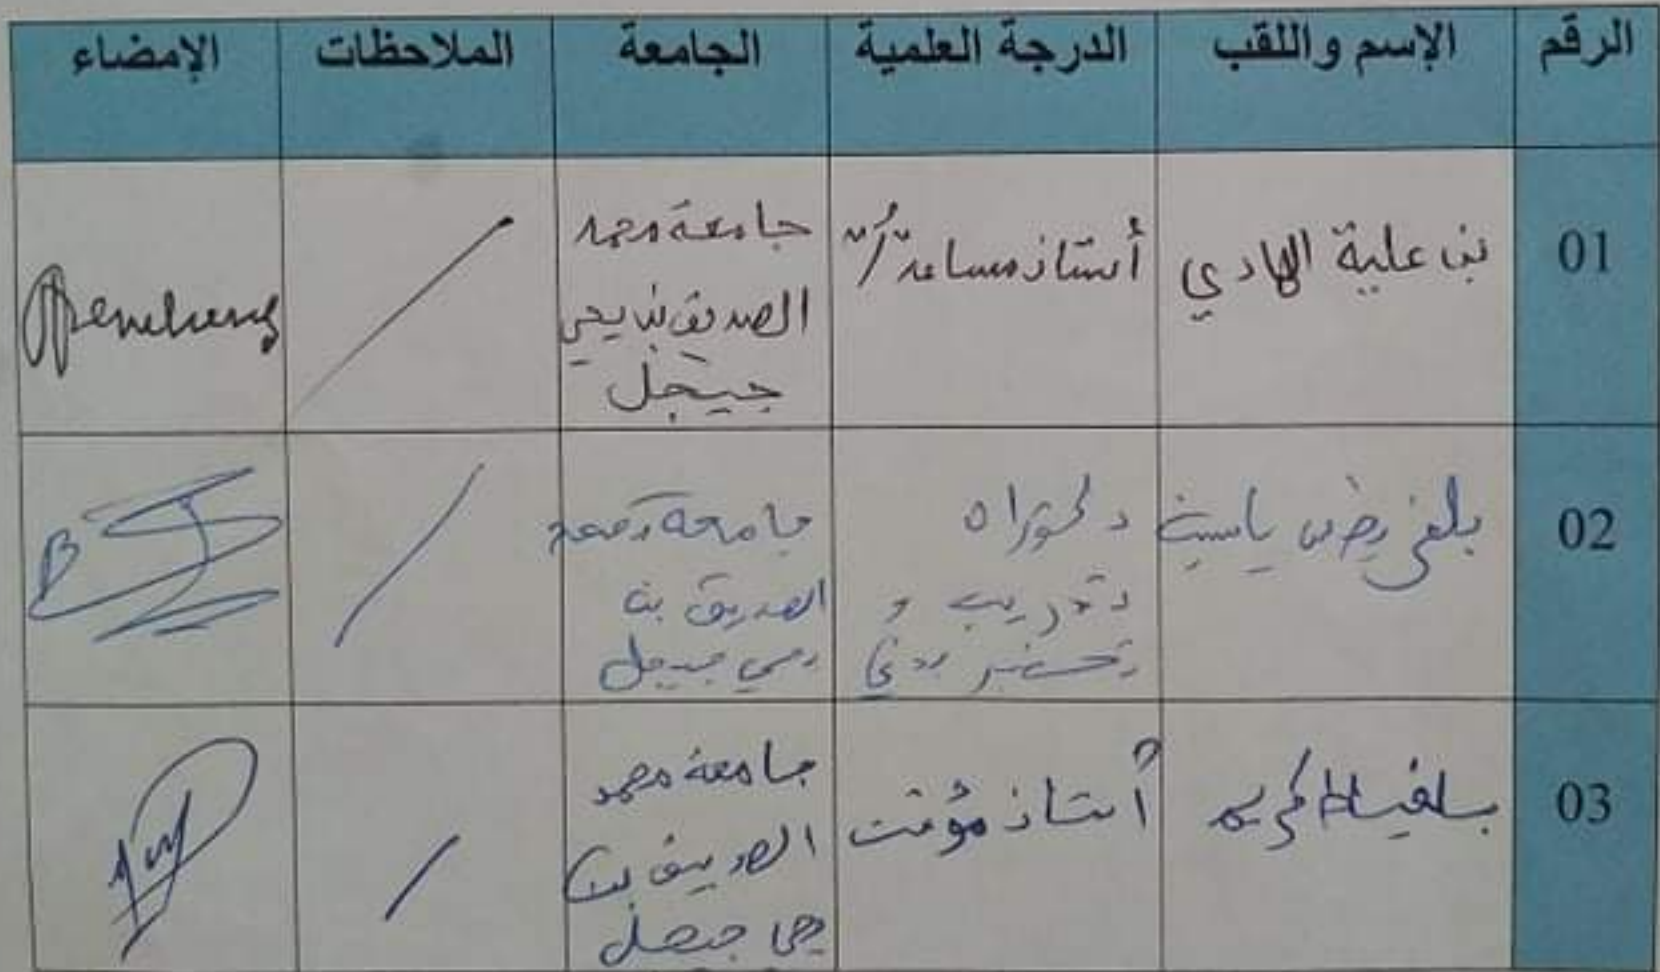 الرقم الإسم واللقب الدرجة العلمية الجامعة الملاحظات الإمضاء
01 بن علية الهادي أستاذ مساعد "أ" جامعة محمد
الصديق بن يحي
جيجل
02 ياسين دكتوراه جامعة محمد
تدريب و الصديق بن
تحضير بدني يحي جيجل
03 كريم أستاذ مؤقت جامعة محمد
الصديق بن
يحي جيجل